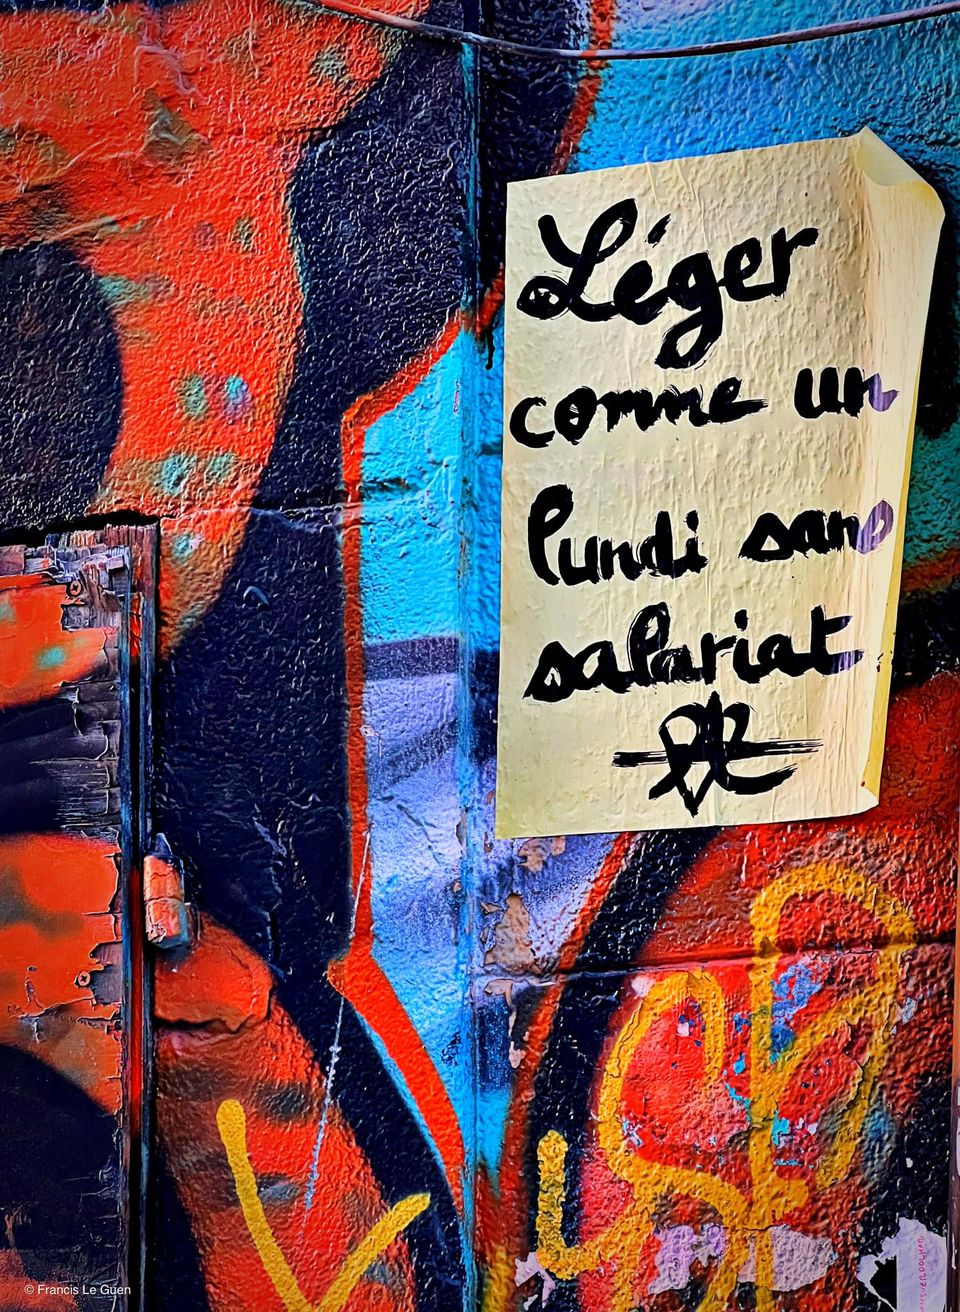 Léger
comme un
lundi sans
salariat
© Francis Le Guen